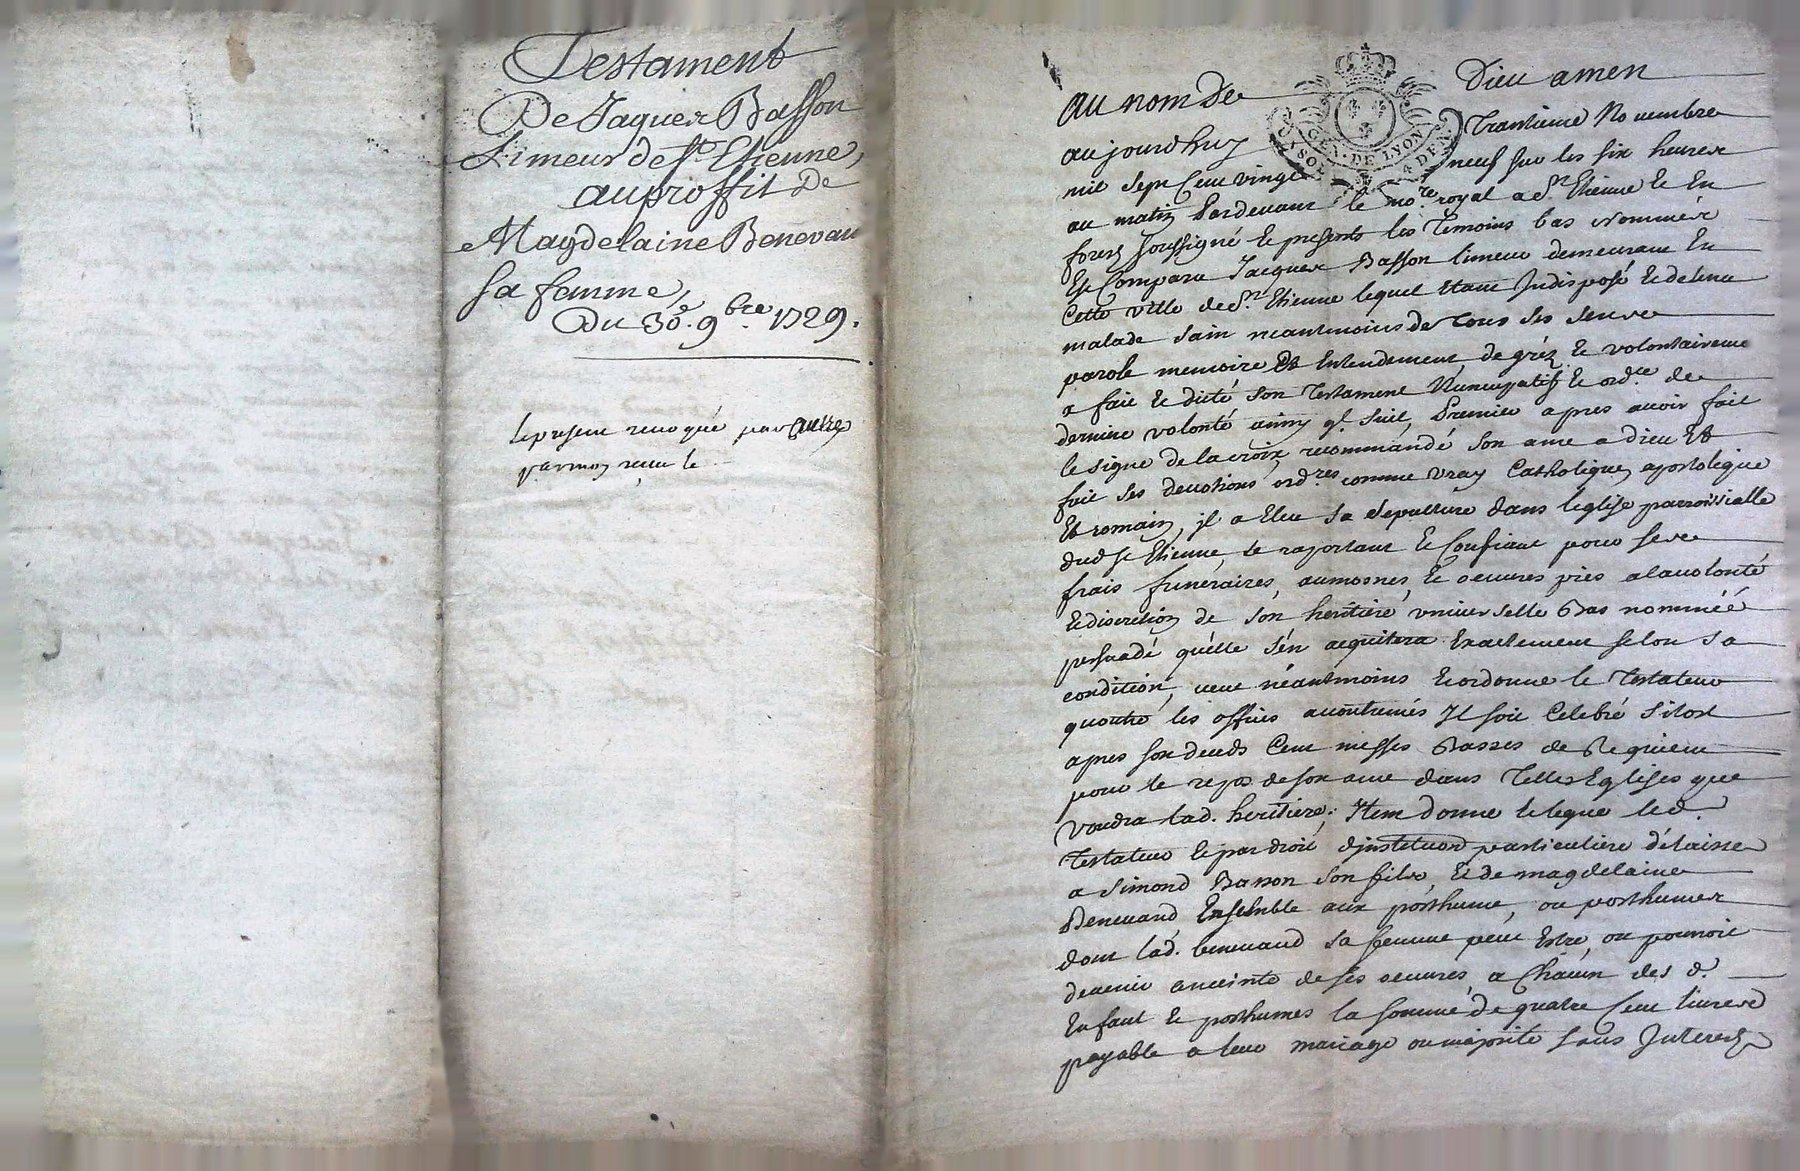 Testament
De Jaques Basson
Limeur de St. Etienne,
au proffit De
Magdelaine Benevan
sa femme,
Du 30e. 9bre. 1729.
le present revoqué par autre
par moy receu le
au nom De Dieu amen
aujourdhuy Trantieme Novembre
mil sept Cent vingt neuf sur les six heures
au matin Pardevant le nore royal a St Etienne de En
forez soussigné Et presents les Temoins bas Nommés
Est Comparu Jacques Basson limeur demeurant En
Cette ville de St Etienne lequel Etant Indisposé et detenu
malade sain neantmoins de Tous ses sens
parole memoire Et Entendement, de gréz Et volontairement
a fait Et dicté son Testament Nuncupatif Et ordre de
derniere volonté ainsy q' suit, Premier apres avoir fait
le signe de la croix, recommandé son ame a dieu Et
fait ses devotions ordres comme vray Catholique, apostolique
Et romain, jl a Eleu sa sepulture dans leglise parroissialle
dud St Etienne, se raportant Et Confiant pour ses
frais funeraires, aumosnes, Et oeuvres pies a la volonté
Et discretion de son heritiere universelle Bas nommée
persuadé qu'elle s'en acquitera Exactement selon sa
condition, veut néantmoins Et ordonne le Testateur
quoutre les offices accoutumés Il soit Celebré sitost
apres son deceds Cent messes Basses de Requiem
pour le repos de son ame dans Telles Eglises que
voudra lad. heritiere; Item donne Et legue led.
Testateur Et par droit d'institution particuliere délaisse
a Simond Basson son fils, Et de magdelaine
Benevand, Ensemble aux posthume, ou posthumes
dont lad. benevand sa femme peut Estre, ou pourroit
devenir enceinte de ses oeuvres, a Chacun des d.
Enfant Et posthumes la somme de quatre Cent livres
payable a leur mariage ou majorité sans Interest
GEN. DE LYON